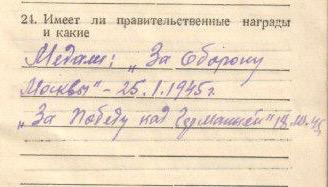 24. Имеет ли правительственные награды
и какие
Медали: „За Оборону
Москвы" – 25.1.1945г.
„За Победу над Германией"